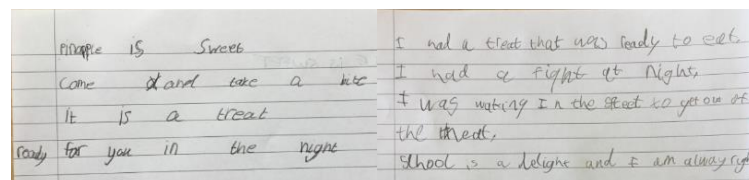 PiNapple is Sweet
Come and take a bite
it is a treat
ready for you in the night
I had a treat that was ready to eat.
I had a fight at Night,
I was wating In the steet to get out of
the theat,
School is a delight and I am alway